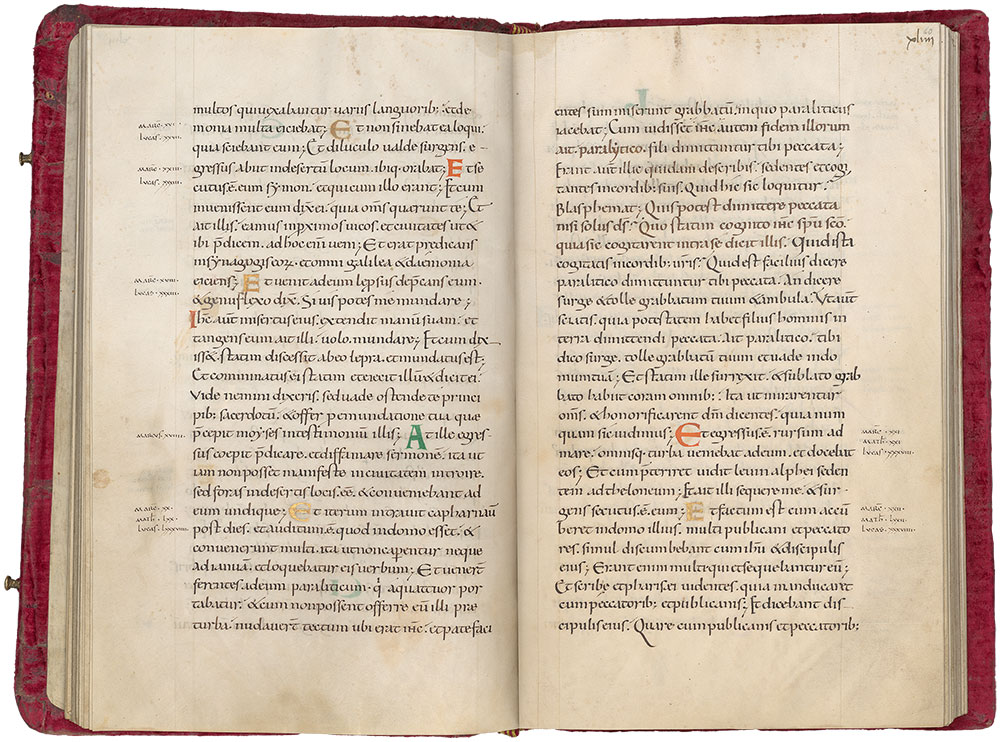 multos qui uexabantur uariis languorib; et de
monia multa eiciebat; Et non sinebat ea loqui.
quia sciebant eum; Et diluculo ualde surgens. e-
gressus abiit in desertu locum. ibiq; orabat; Et se
cutus e eum symon. et qui cum illo erant; Et cum
inuenissent eum dixer. quia oms querunt te; Et
ait illis. eamus in pximos uicos. et ciuitates ut et
ibi pdicem. ad hoc eni ueni; Et erat predicans
in synagogis eorz. et omni galilea & daemonia
eiciens; Et uenit ad eum lepsus depcans eum.
& genu flexo dix. Si uis potes me mundare;
Ihc aut misertus eius. extendit manu suam. et
tangens eum ait illi. uolo. mundare; Et cum dix-
iss& statim discessit ab eo lepra. et mundatus est;
Et comminatus e ei statim et eiecit illu & dicit ei.
Vide nemini dixeris. sed uade ostende te princi
pib; sacerdotu. & offer p emundatione tua que
pcepit moyses in testimoniu illis; At ille egres-
sus coepit pdicare. et diffamare sermone. ita ut
iam non posset manifeste in ciuitatem introire.
sed foras in desertis locis ee. & conueniebant ad
eum undique; Et iterum intrauit capharnau
post dies. et auditum e quod in domo esset. &
conuenerunt multi. ita ut non caperentur neque
ad ianua. et loquebatur eis uerbum; Et uenert
ferentes ad eum paraliticum. qi a quattuor por
tabatur. & cum non possent offerre eu illi prae
turba. nudauert tectum ubi erat ihc. et patefaci
marc xxi
lucas xxvii
marc xxiii
lucas xxviii
marc xxiii
lucas xxxiii
marcus xviii
marc xx
math lxx
lucas xxxvii
xlviii
60
entes summiserunt grabbatu. in quo paraliticus
iacebat; Cum uidisset ihc autem fidem illorum
ait paralytico. fili dimittuntur tibi peccata;
Erant aut illic quidam de scribis. sedentes et cogi
tantes in cordib; suis. Quid hic sic loquitur.
Blasphemat; Quis potest dimittere peccata
nisi solus ds; Quo statim cognito ihc spu sco.
quia sic cogitarent intra se dicit illis. Quid ista
cogitatis in cordib; uris. Quid est facilius dicere
paralitico dimittuntur tibi peccata. An dicere
surge & tolle grabbatum tuum & ambula. Vt aut
sciatis. quia potestatem habet filius hominis in
terra dimittendi peccata. Ait paralitico. tibi
dico surge. tolle grabbatu tuum et uade in do
mum tua; Et statim ille surrexit. & sublato grab
bato habiit coram omnib: Ita ut mirarentur
oms. & honorificarent dm dicentes. quia num
quam sic uidimus; Et egressus. e rursum ad
mare. omnisq; turba ueniebat ad eum. et docebat
eos; Et cum pteriret uidit leuin alphei seden
tem. ad theloneum; Et ait illi sequere me. & sur-
gens secutus e. eum; Et factum est cum accu
beret in domo illius. multi publicani et peccato
res. simul discumbebant cum ihu & discipulis
eius; Erant enim multi qui et sequebantur eu;
Et scribe et pharisei uidentes. quia manducaret
cum peccatorib; et publicanis; Et dicebant dis-
cipulis eius. Quare cum publicanis et peccatorib;
marc xxi
math lxxi
lucas xxxviii
marc xxii
math lxxii
lucas xxxviiii